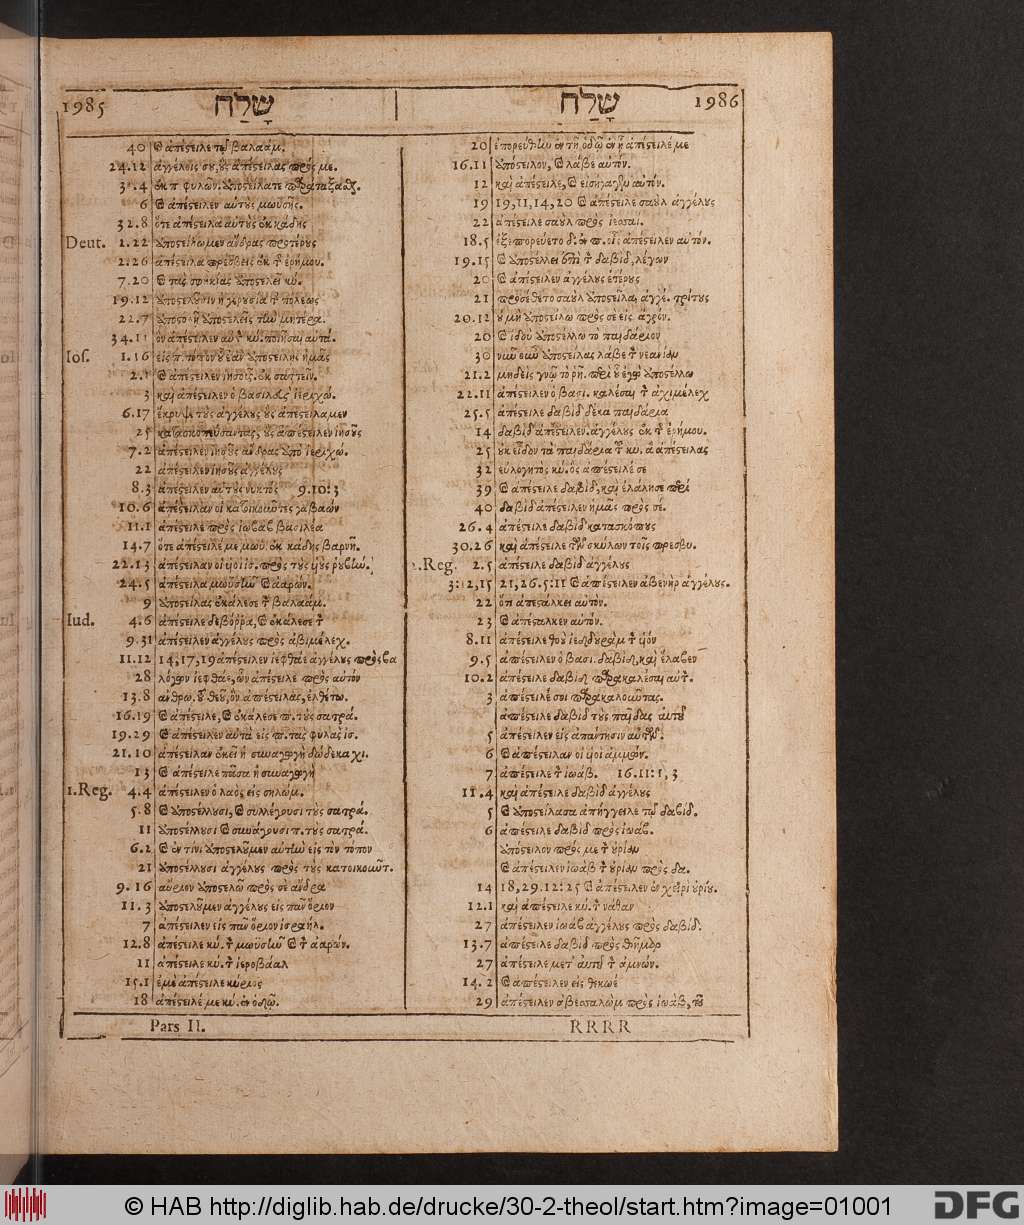 1985 שָׁלַח
40 ἀπέστειλε τῷ βαλαάμ.
24.12 ἀγγέλοις σου, οὓς ἀπέστειλας πρός με.
6 καὶ ἀπέστειλεν αὐτοὺς μωυσῆς.
32.8 ὅτε ἀπέστειλα αὐτοὺς ἐκ κάδης
Deut. 1.22 ἀποστείλωμεν ἄνδρας προτέρους
2.26 ἀπέστειλα πρέσβεις ἐκ τ ἐρήμου.
7.20 καὶ τὰς σφηκίας ἀποστελεῖ κύ.
19.12 ἀποστελοῦσιν ἡ γερουσία τ πόλεως
34.11 ὃν ἀπέστειλεν αὐτ κύ. ποιῆσαι αὐτά.
Ios. 1.16
2.1 καὶ ἀπέστειλεν ἰησοῦς. ἐκ σαττεῖν.
3 καὶ ἀπέστειλεν ὁ βασιλεὺς ἱεριχώ.
6.17 ἔκρυψε τοὺς ἀγγέλους οὓς ἀπεστείλαμεν
25 κατασκοπεύσαντας, οὓς ἀπέστειλεν ἰησοῦς
7.2 ἀπέστειλεν ἰησοῦς ἄνδρας ἀπὸ ἱεριχώ.
22 ἀπέστειλεν ἰησοῦς ἀγγέλους
8.3 ἀπέστειλεν αὐτοὺς νυκτός 9.10:3
10.6 ἀπέστειλαν οἱ κατοικοῦντες γαβαών
11.1 ἀπέστειλε πρὸς ἰωβαβ βασιλέα
14.7 ὅτε ἀπέστειλέ με μωυ. ἐκ κάδης βαρνῆ.
22.13 ἀπέστειλαν οἱ υἱοὶ ἰσ. πρὸς τοὺς υἱοὺς ῥουβήν.
24.5 ἀπέστειλα μωυσῆν καὶ ἀαρών.
9 ἀποστείλας ἐκάλεσε τ βαλαάμ.
Iud. 4.6 ἀπέστειλε δεβόρρα, καὶ ἐκάλεσε τ
9.31 ἀπέστειλεν ἀγγέλους πρὸς ἀβιμέλεχ.
11.12 14, 17, 19 ἀπέστειλεν ἰεφθάε ἀγγέλους πρὸς βα
28 λόγων ἰεφθάε, ὧν ἀπέστειλε πρὸς αὐτόν
13.8 ἄνθρω. τ θεοῦ, ὃν ἀπέστειλας, ἐλθέτω.
16.19 καὶ ἀπέστειλε, καὶ ἐκάλεσε π. τοὺς σατρά.
19.29 καὶ ἀπέστειλεν αὐτὰ εἰς π. τὰς φυλὰς ἰσ.
21.10 ἀπέστειλαν ἐκεῖ ἡ συναγωγὴ δώδεκα χι.
13 καὶ ἀπέστειλε πᾶσα ἡ συναγωγὴ
1.Reg. 4.4 ἀπέστειλεν ὁ λαὸς εἰς σηλώμ.
5.8 καὶ ἀποστέλλουσι, καὶ συλλέγουσι τοὺς σατρά.
11 ἀποστέλλουσι καὶ συνάγουσι π. τοὺς σατρά.
6.2 καὶ ἐν τίνι ἀποστελοῦμεν αὐτὴν εἰς τὸν τόπον
21 ἀποστέλλουσι ἀγγέλους πρὸς τοὺς κατοικοῦντ.
9.16 αὔριον ἀποστελῶ πρὸς σὲ ἄνδρα
11.3 ἀποστελοῦμεν ἀγγέλους εἰς πᾶν ὅριον
7 ἀπέστειλεν εἰς πᾶν ὅριον ἰσραήλ.
12.8 ἀπέστειλε κύ. τ μωυσῆν καὶ τ ἀαρών.
11 ἀπέστειλε κύ. τ ἱεροβάαλ
15.1 ἐμὲ ἀπέστειλε κύριος
18 ἀπέστειλέ με κύ. ἐν ὁδῷ.
Pars II.
שָׁלַח 1986
20 ἐπορεύθην ἐν τῇ ὁδῷ ἐν ᾗ ἀπέστειλέ με
16.11 ἀπόστειλον, καὶ λάβε αὐτόν.
12 καὶ ἀπέστειλε, καὶ εἰσήγαγεν αὐτόν.
19 19, 11, 14, 20 καὶ ἀπέστειλε σαοὺλ ἀγγέλους
22 ἀπέστειλε σαοὺλ πρὸς ἰεσσαί.
18.5 ἀπέστειλεν αὐτόν.
19.15 καὶ ἀποστέλλει ἐπὶ τ δαβίδ, λέγων
20 καὶ ἀπέστειλεν ἀγγέλους ἑτέρους
21 προσέθετο σαοὺλ ἀποστεῖλαι ἀγγέ. τρίτους
20.12 οὐ μὴ ἀποστείλω πρὸς σὲ εἰς ἀγρόν.
20 καὶ ἰδοὺ ἀποστέλλω τὸ παιδάριον
30 νῦν οὖν ἀποστείλας λάβε τ νεανίαν
21.2 μηδεὶς γνῷ τὸ ῥῆ. περὶ οὗ ἐγὼ ἀποστέλλω
22.11 ἀπέστειλεν ὁ βασι. καλέσαι τ ἀχιμέλεχ
25.5 ἀπέστειλε δαβὶδ δέκα παιδάρια
14 δαβὶδ ἀπέστειλεν ἀγγέλους ἐκ τ ἐρήμου.
25 οὐκ εἶδον τὰ παιδάρια τ κυ. ἃ ἀπέστειλας
32 εὐλογητὸς κύ. ὃς ἀπέστειλέ σε
39 καὶ ἀπέστειλε δαβίδ, καὶ ἐλάλησε περὶ
40 δαβὶδ ἀπέστειλεν ἡμᾶς πρὸς σέ.
26.4 ἀπέστειλε δαβὶδ κατασκόπους
30.26 καὶ ἀπέστειλε τῶν σκύλων τοῖς πρεσβυ.
2.Reg. 2.5 ἀπέστειλε δαβὶδ ἀγγέλους
3:12,15 21, 26.5:11 καὶ ἀπέστειλεν ἀβεννὴρ ἀγγέλους.
22 ὅτι ἀπεστάλκει αὐτόν.
23 καὶ ἀπέσταλκεν αὐτόν.
8.11 ἀπέστειλε θοοὺ ἰεδδουρὰμ τ υἱόν
9.5 ἀπέστειλεν ὁ βασι. δαβίδ, καὶ ἔλαβεν
10.2 ἀπέστειλε δαβὶδ παρακαλέσαι αὐτ.
3 ἀπέστειλέ σοι παρακαλοῦντας.
ἀπέστειλε δαβὶδ τοὺς παῖδας αὐτοῦ
5 ἀπέστειλεν εἰς ἀπάντησιν αὐτῶν.
6 καὶ ἀπέστειλαν οἱ υἱοὶ ἀμμών.
7 ἀπέστειλε τ ἰωάβ. 16.11:1,3
11.4 καὶ ἀπέστειλε δαβὶδ ἀγγέλους
5 καὶ ἀποστείλασα ἀπήγγειλε τῷ δαβίδ.
6 ἀπέστειλε δαβὶδ πρὸς ἰωάβ.
ἀπόστειλον πρός με τ οὐρίαν
καὶ ἀπέστειλεν ἰωὰβ τ οὐρίαν πρὸς δα.
14 18, 29.12:25 καὶ ἀπέστειλεν ἐν χειρὶ οὐρίου.
12.1 καὶ ἀπέστειλε κύ. τ νάθαν
27 ἀπέστειλεν ἰωὰβ ἀγγέλους πρὸς δαβίδ.
13.7 ἀπέστειλε δαβὶδ πρὸς θημὰρ
27 ἀπέστειλε μετ' αὐτοῦ τ ἀμνών.
14.2 καὶ ἀπέστειλεν εἰς θεκωέ
29 ἀπέστειλεν ἀβεσσαλὼμ πρὸς ἰωάβ, τοῦ
RRRR
© HAB http://diglib.hab.de/drucke/30-2-theol/start.htm?image=01001 DFG